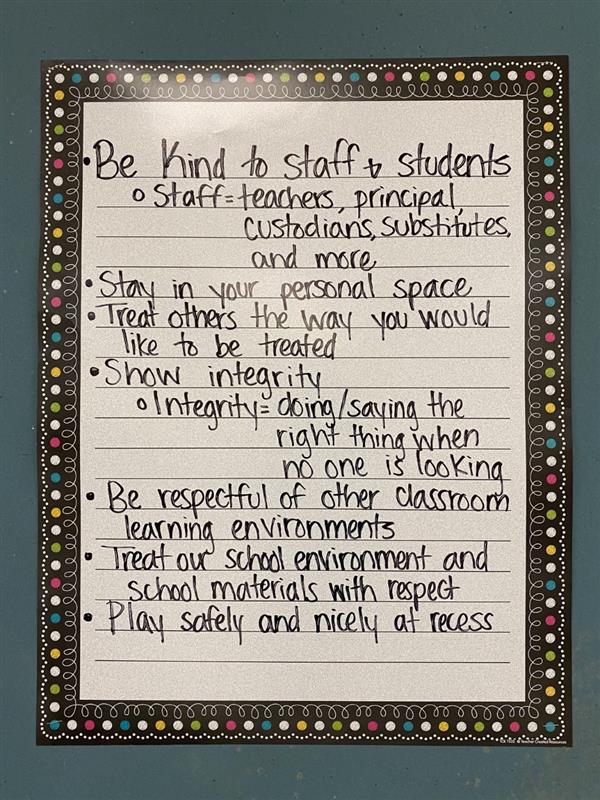 • Be Kind to staff & students
o Staff = teachers, principal,
custodians, substitutes,
and more
• Stay in your personal space
• Treat others the way you would
like to be treated
• Show integrity
o Integrity = doing/saying the
right thing when
no one is looking
• Be respectful of other classroom
learning environments
• Treat our school environment and
school materials with respect
• Play safely and nicely at recess
© Teacher Created Resources